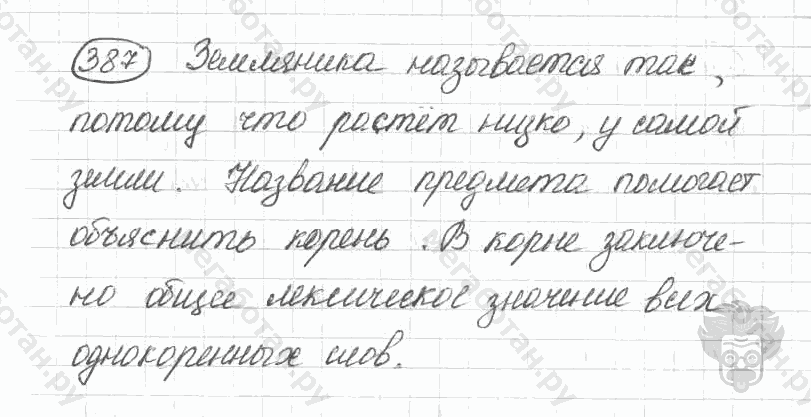 387 Земляника называется так,
потому что растёт низко, у самой
земли. Название предмета помогает
объяснить корень. В корне заключе-
но общее лексическое значение всех
однокоренных слов.
мегаботан.ру